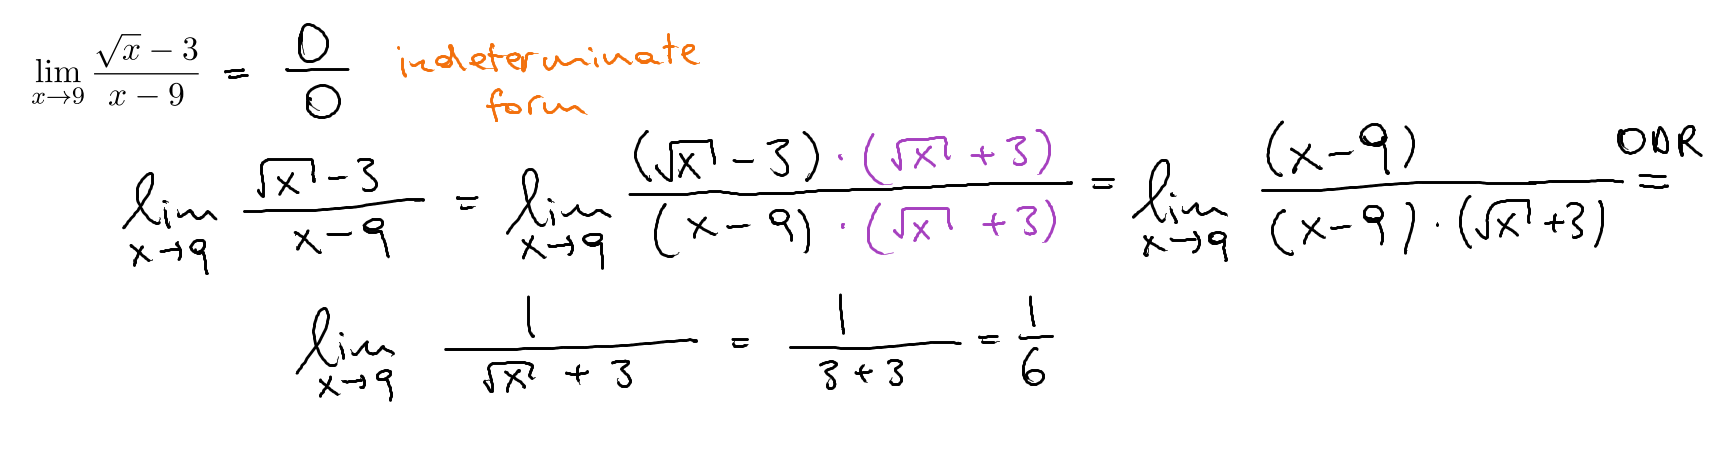 lim x→9 (√x − 3)/(x − 9) = 0/0 indeterminate form
lim x→9 (√x − 3)/(x − 9) = lim x→9 ((√x − 3) · (√x + 3))/((x − 9) · (√x + 3)) = lim x→9 (x − 9)/((x − 9) · (√x + 3)) ODR =
lim x→9 1/(√x + 3) = 1/(3 + 3) = 1/6